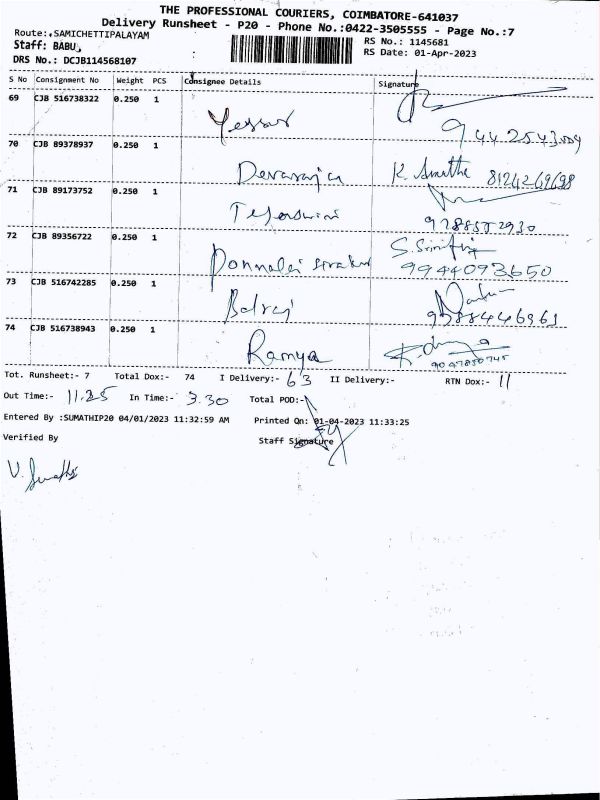 THE PROFESSIONAL COURIERS, COIMBATORE-641037
Delivery Runsheet - P20 - Phone No.:0422-3505555 - Page No.:7
Route:.SAMICHETTIPALAYAM
RS No.: 1145681
Staff: BABU,
RS Date: 01-Apr-2023
DRS No.: DCJB114568107
S No Consignment No Weight PCS Consignee Details Signature
69 CJB 516738322 0.250 1
70 CJB 89378937 0.250 1 Devaraju K. Smitha 8124269698
71 CJB 89173752 0.250 1 9788552930
72 CJB 89356722 0.250 1 9944093650
73 CJB 516742285 0.250 1 Balraj 9588446961
74 CJB 516738943 0.250 1 Ramya
Tot. Runsheet:- 7 Total Dox:- 74 I Delivery:- 63 II Delivery:- RTN Dox:- 11
Out Time:- 11.25 In Time:- 3.30 Total POD:-
Entered By :SUMATHIP20 04/01/2023 11:32:59 AM Printed On: 01-04-2023 11:33:25
Verified By Staff Signature